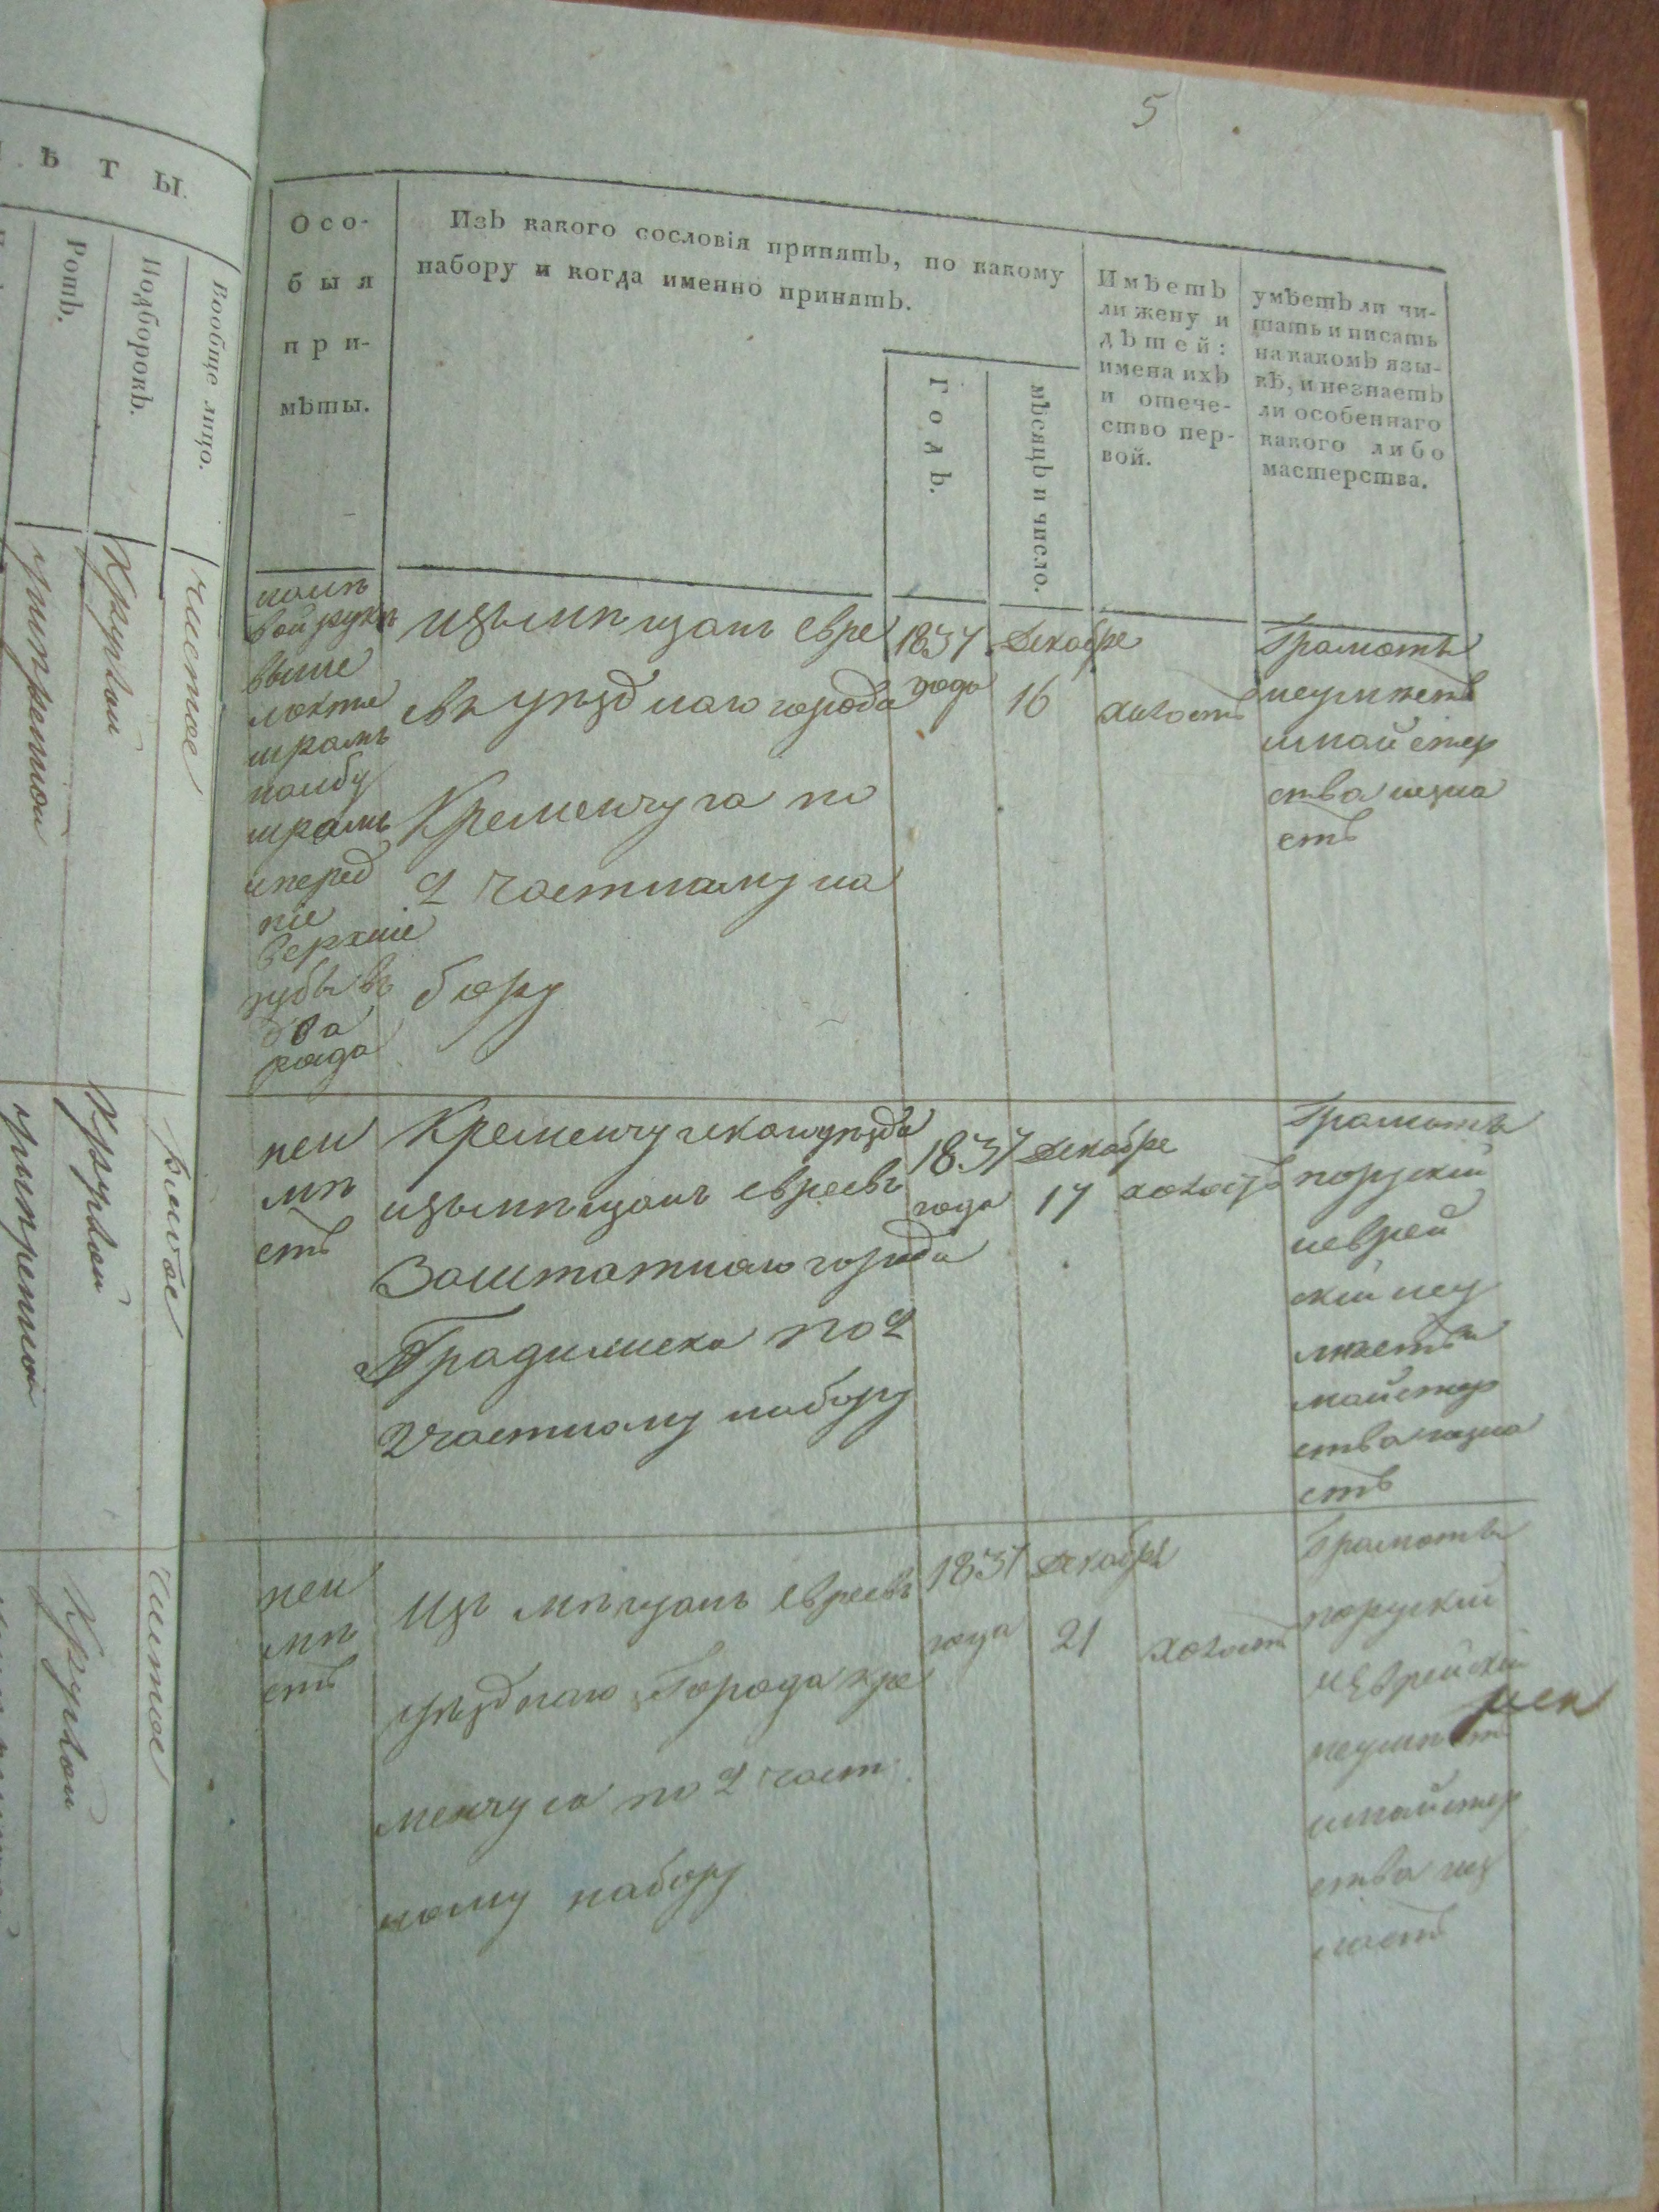 ѢТЫ.
Ротъ.
Подборокъ.
Вообще лицо.
умѣренной
круглой
чистое
умѣренной
круглой
белое
круглой
чистое
5
Осо-
быя
при-
мѣты.
Изъ какого сословія принятъ, по какому
набору и когда именно принятъ.
Годъ.
мѣсяцъ и число.
Имѣетъ
ли жену и
дѣтей:
имена ихъ
и отече-
ство пер-
вой.
умѣетъ ли чи-
тать и писать
на какомъ язы-
кѣ, и незнаетъ
ли особеннаго
какого либо
мастерства.
вой рукѣ
выше
локтя
шрамъ
налбу
шрамъ
иперед
ніе
верхніе
зубы въ
два
ряда
изъмѣщанъ евре
евъ уѣзднаго города
Кременчуга по
2 частному на
бору
1837
года
Декабря
16
холостъ
Грамотѣ
неумѣетъ
имайстер
ства незна
етъ
неи
мѣ
етъ
Кременчугскаго уѣзда
изъмѣщанъ евреевъ
Заштатнаго города
Градижска по 2
2 частному набору
1837
года
Декабря
17
холостъ
Грамотѣ
поруский
иеврей
ский неу
мѣетъ и
майстер
ства незна
етъ
неи
мѣ
етъ
Изъ мѣщанъ евреевъ
уѣзднаго Города Кре
менчуга по 2 част
ному набору
1837
года
Декабря
21
холостъ
Грамотѣ
поруский
иеврейский
неумѣетъ
имайстер
ства нез
наетъ